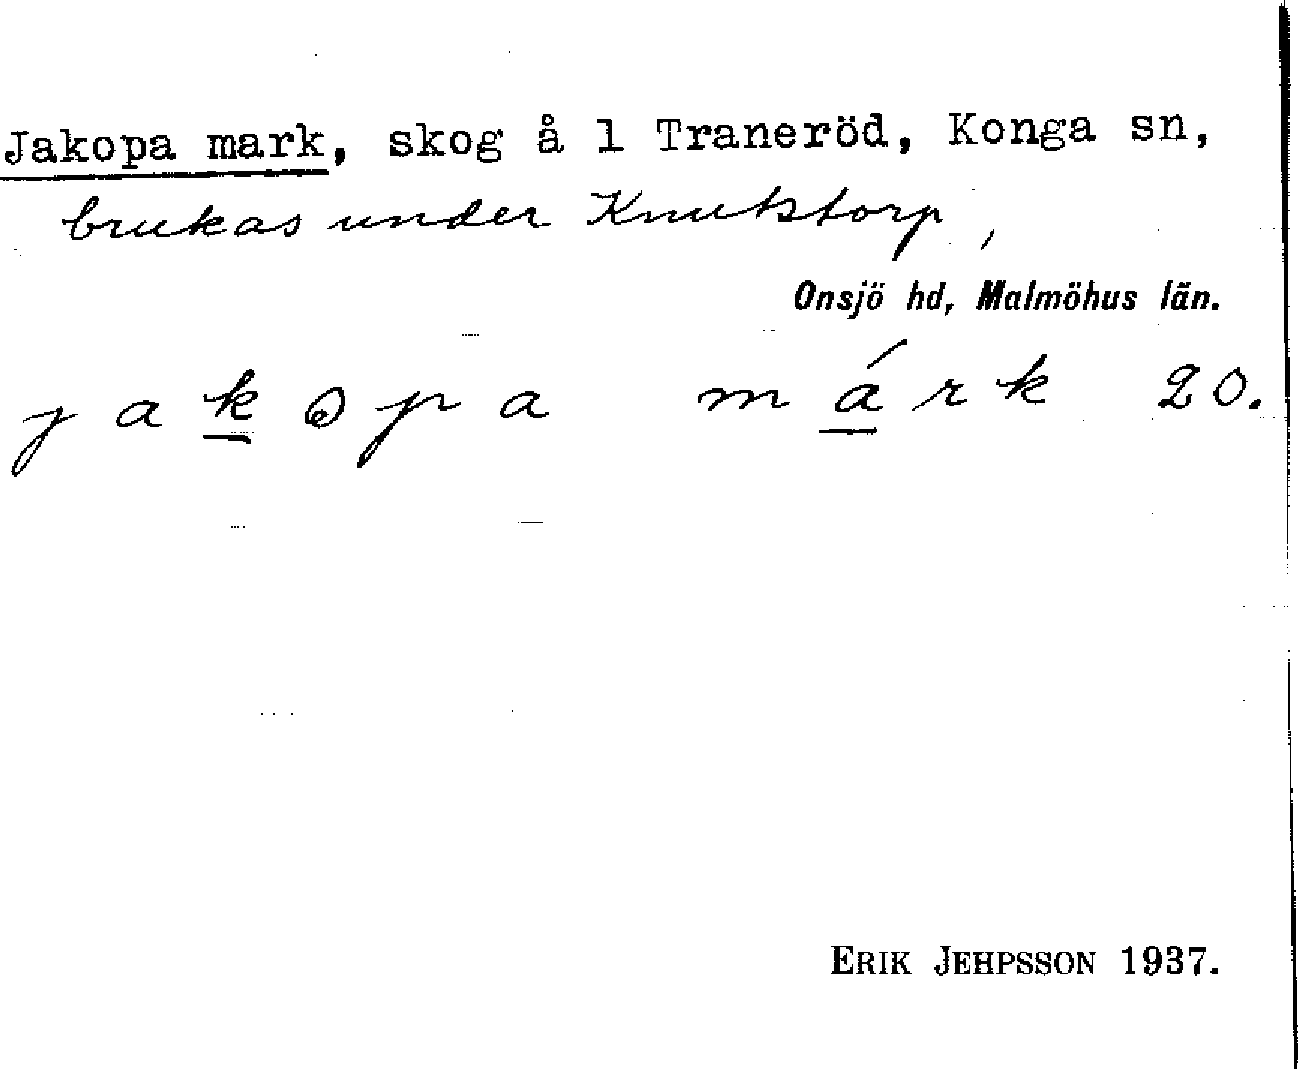 Jakopa mark, skog å 1 Traneröd, Konga sn,
brukas under Knutstorp,
Onsjö hd, Malmöhus län.
jakopa márk 20.
ERIK JEHPSSON 1937.